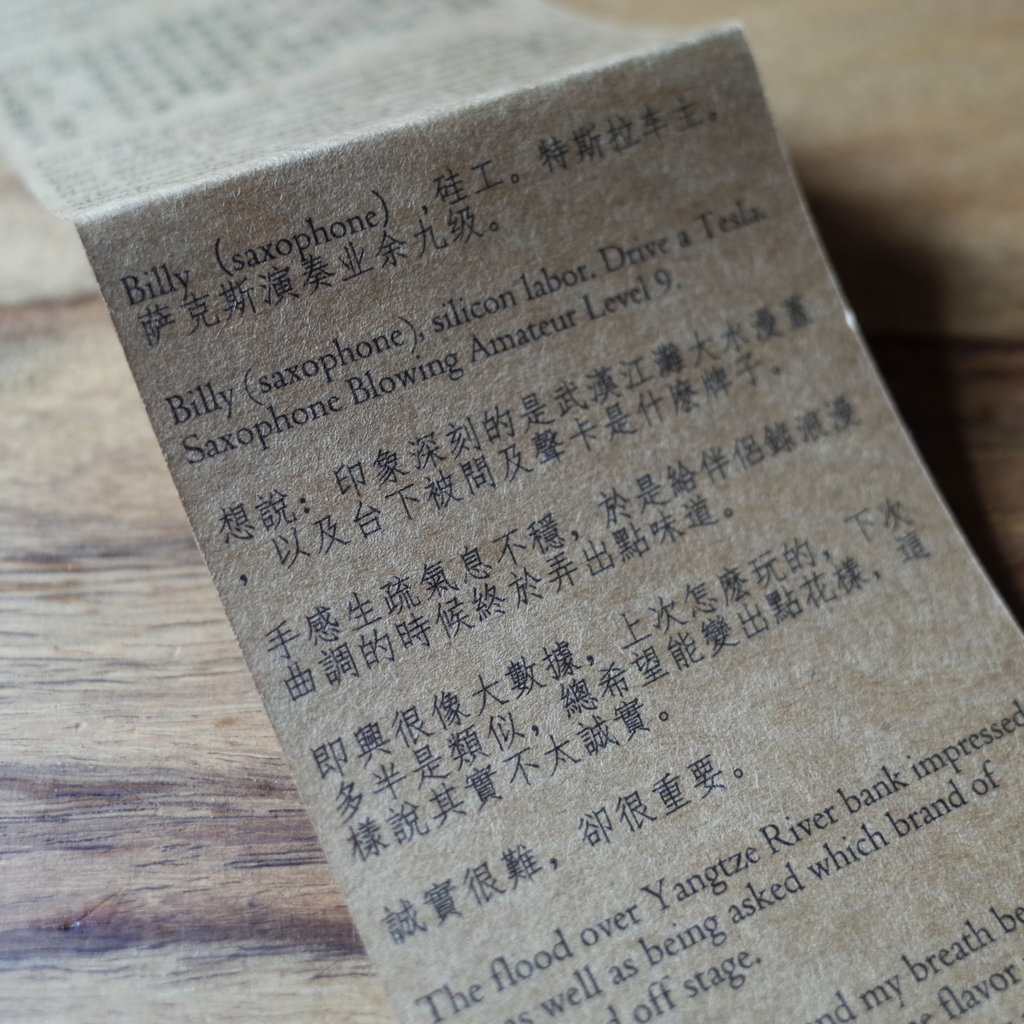 Billy (saxophone) ,硅工。特斯拉车主。
萨克斯演奏业余九级。
Billy (saxophone), silicon labor. Drive a Tesla.
Saxophone Blowing Amateur Level 9.
想說：印象深刻的是武漢江灘大水漫蓋
，以及台下被問及聲卡是什麽牌子。
手感生疏氣息不穩，於是給伴侶錄浪漫
曲調的時候終於弄出點味道。
即興很像大數據，上次怎麽玩的，下次
多半是類似，總希望能變出點花樣，這
樣說其實不太誠實。
誠實很難，卻很重要。
The flood over Yangtze River bank impressed
as well as being asked which brand of
off stage.
and my breath be
flavor